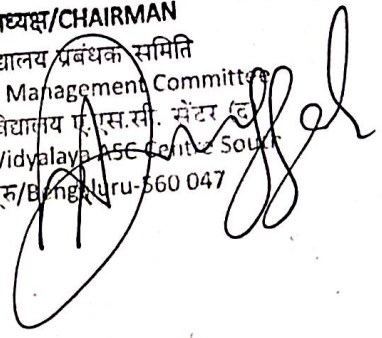 ध्यक्ष/CHAIRMAN
द्यालय प्रबंधक समिति
Management Committee
विद्यालय ए.एस.सी. सेंटर (द
Vidyalaya ASC Centre South
रु/Bengaluru-560 047